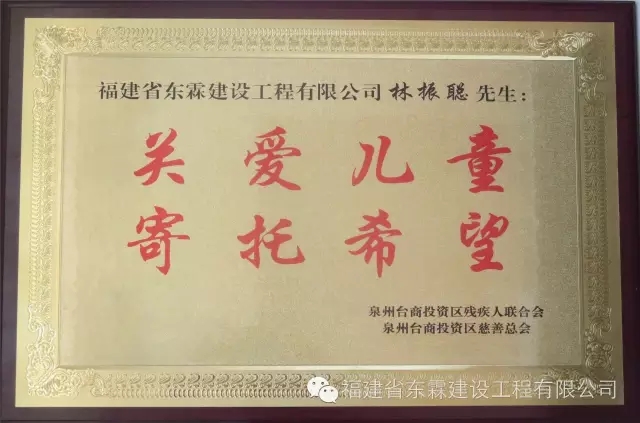 福建省东霖建设工程有限公司林振聪先生:
关爱儿童
寄托希望
泉州台商投资区残疾人联合会
泉州台商投资区慈善总会
福建省东霖建设工程有限公司